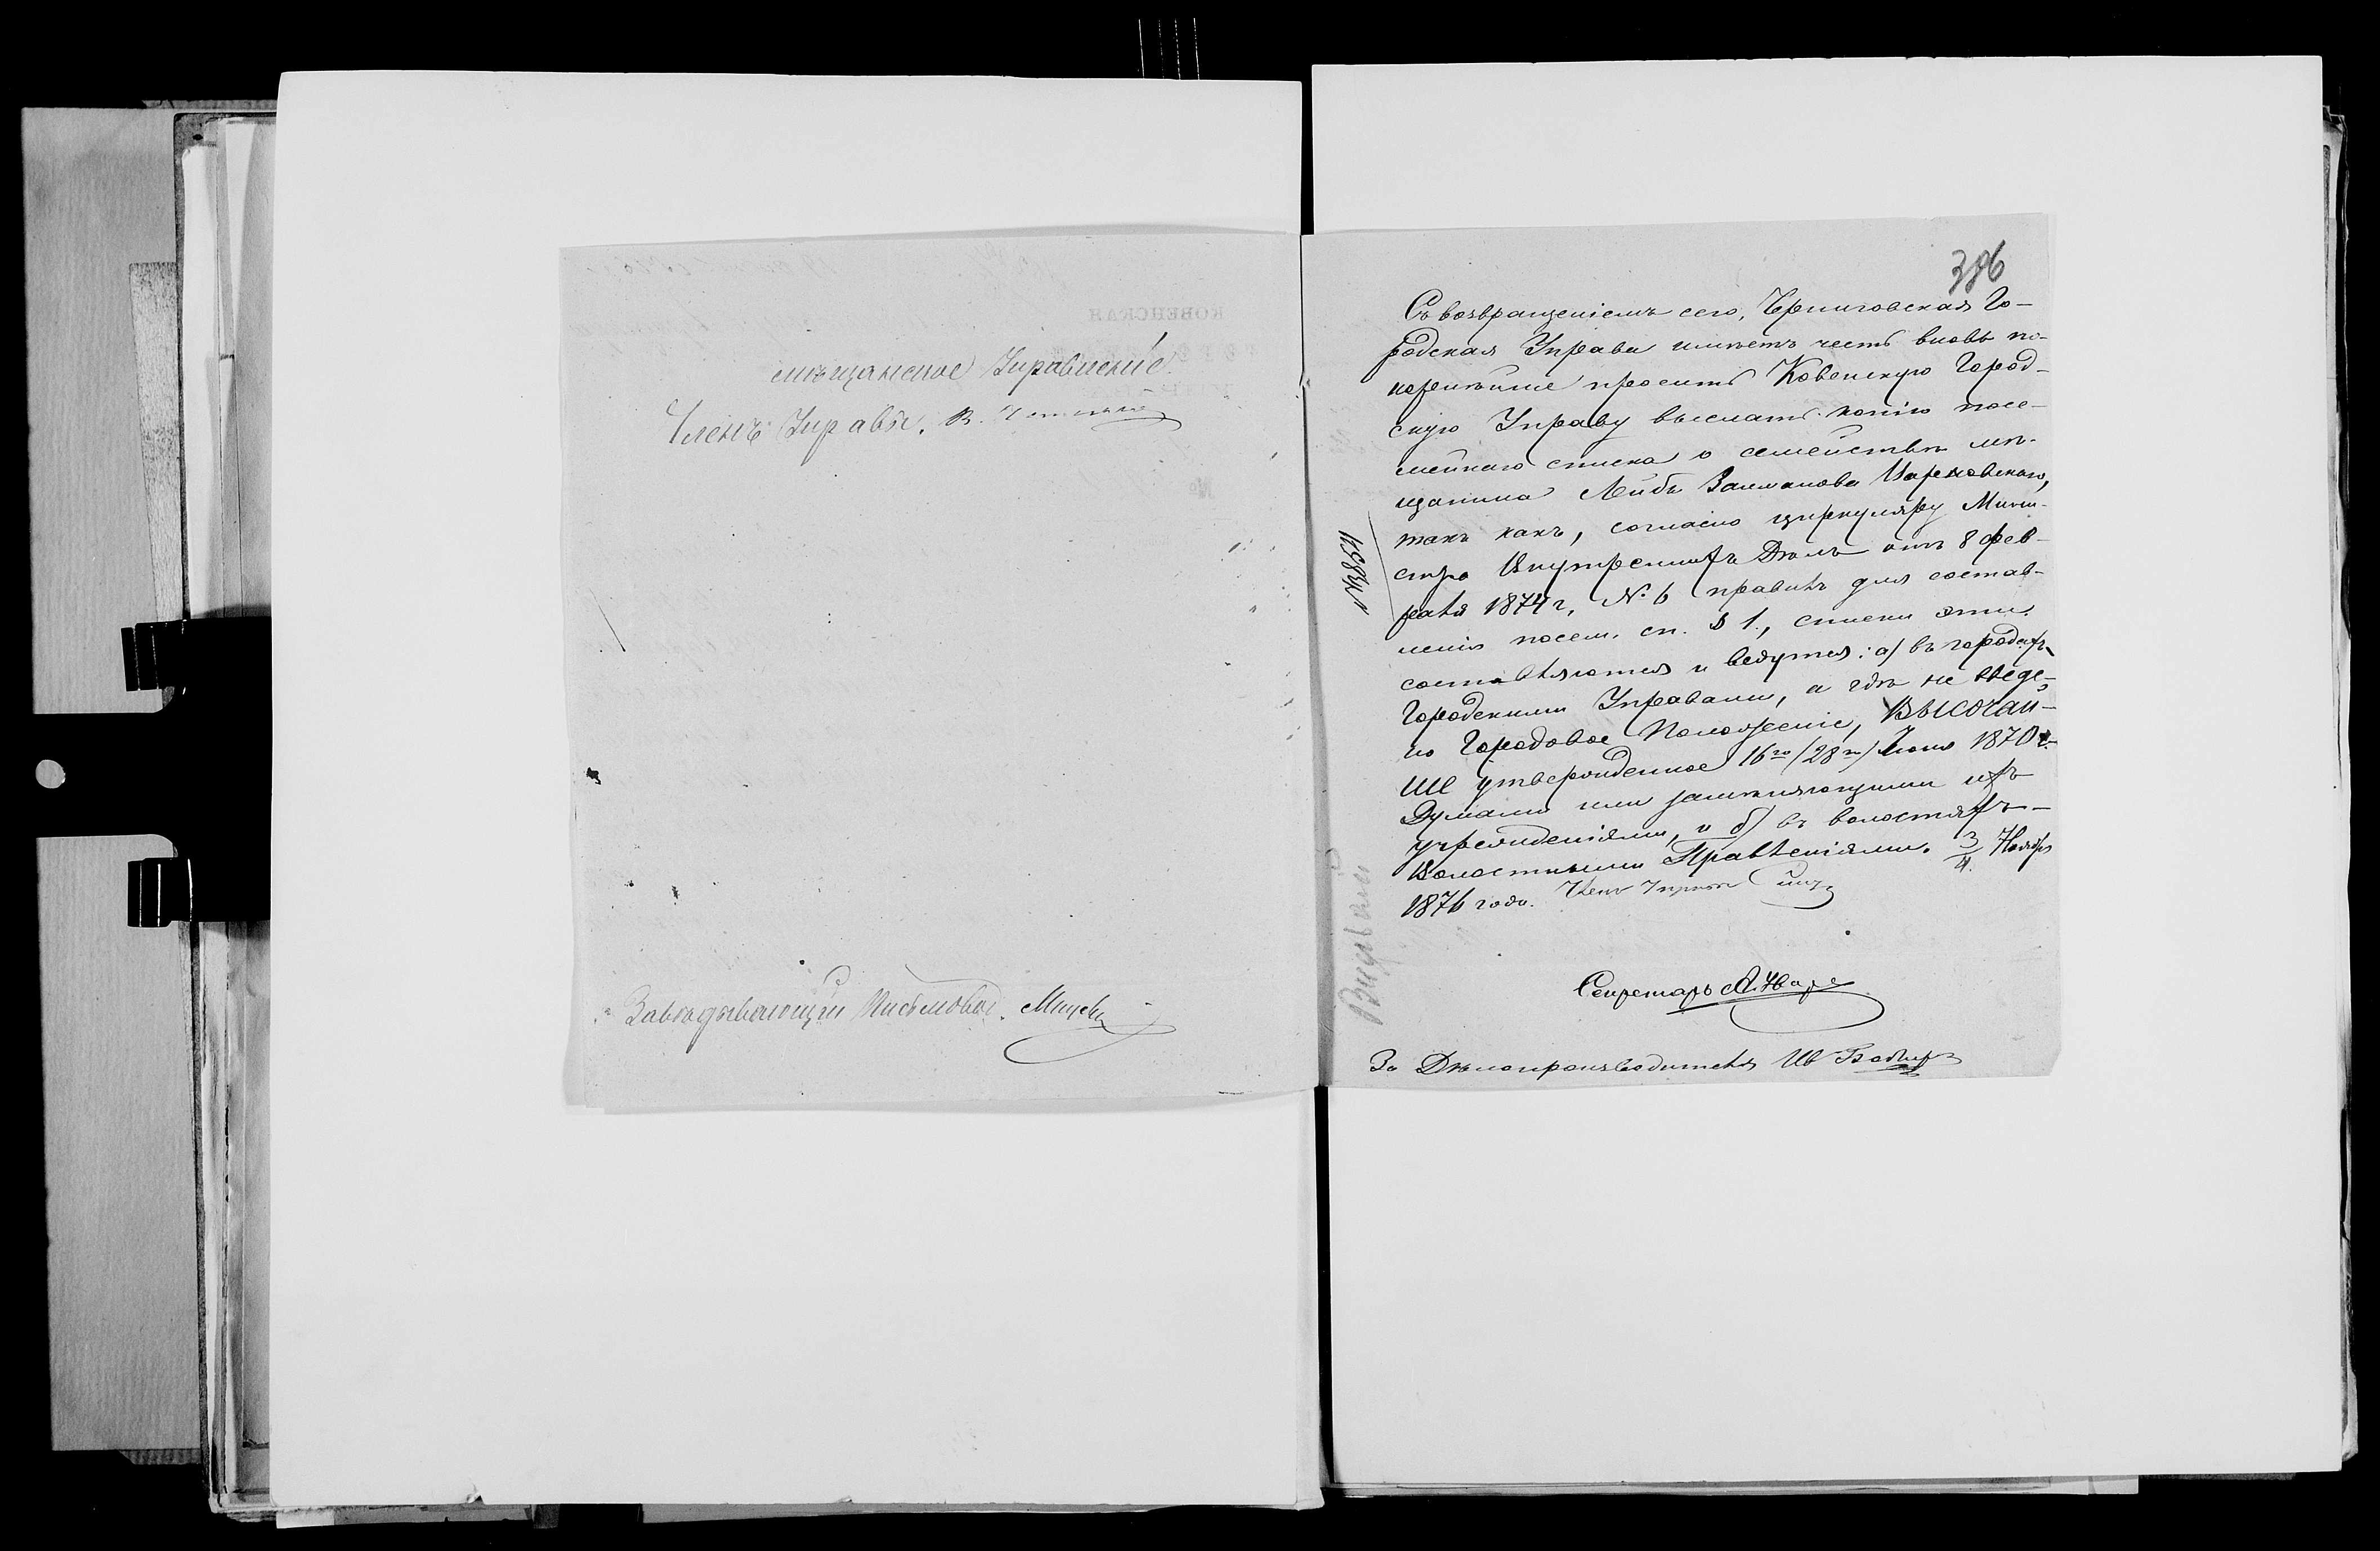 мѣщанское Управленіе
Членъ Управы, В.
Завѣдывающій Письмовод.
386
Съ возвращеніемъ сего, Черниговская Го-
родская Управа имѣетъ честь вновь по-
корнѣйше просить Ковенскую Город-
скую Управу выслать копію посе-
мейнаго списка о семействѣ мѣ-
щанина Лейбы Залманова
такъ какъ, согласно циркуляру Мини-
стра Внутреннихъ Дѣлъ отъ 8 фев-
раля 1874 г. № 6 правилъ для состав-
ленія посем. сп. § 1., списки эти
составляются и ведутся: а) въ городахъ
Городскими Управами, а гдѣ не введе-
но Городовое Положеніе, ВЫСОЧАЙ-
ШЕ утвержденное 16го (28го) Іюня 1870 г.
Думами или замѣняющими ихъ
учрежденіями, и б) въ волостяхъ -
Волостными Правленіями. 3/4 Ноября
1876 года. Членъ Управы
Секретарь
За Дѣлопроизводителя Ив